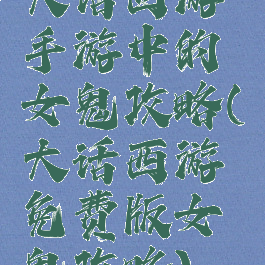 大话西游
手游中的
女鬼攻略(
大话西游
免费版女
鬼攻略)